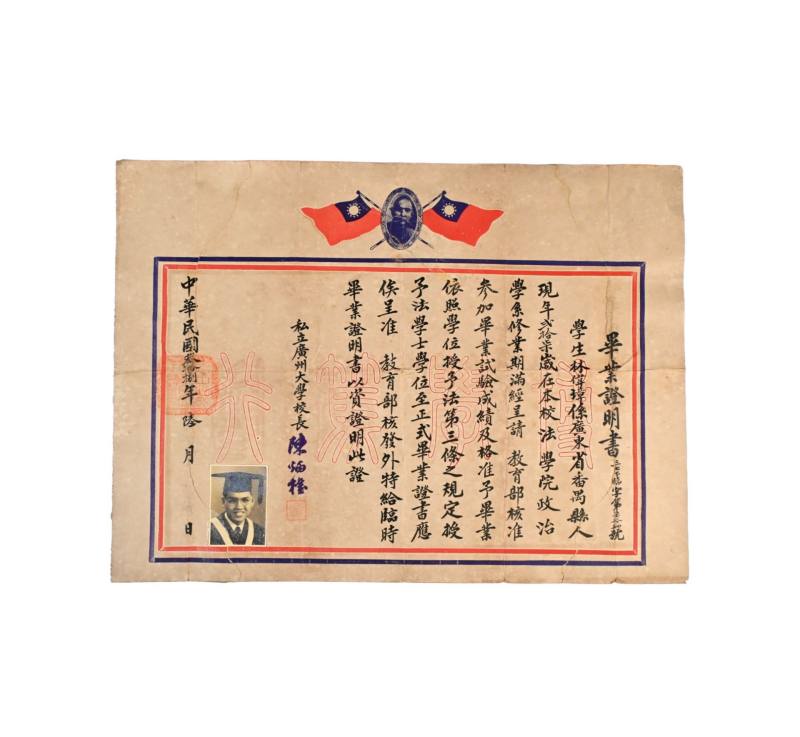 畢業證明書
學生林偉璋係廣東省番禺縣人
現年貳拾柒歲在本校法學院政治
學系修業期滿經呈請 教育部核准
參加畢業試驗成績及格准予畢業
依照學位授予法第三條之規定授
予法學士學位至正式畢業證書應
俟呈准 教育部核發外特給臨時
畢業證明書以資證明此證
私立廣州大學校長 陳炳權
中華民國叁拾捌年 陸 月 日